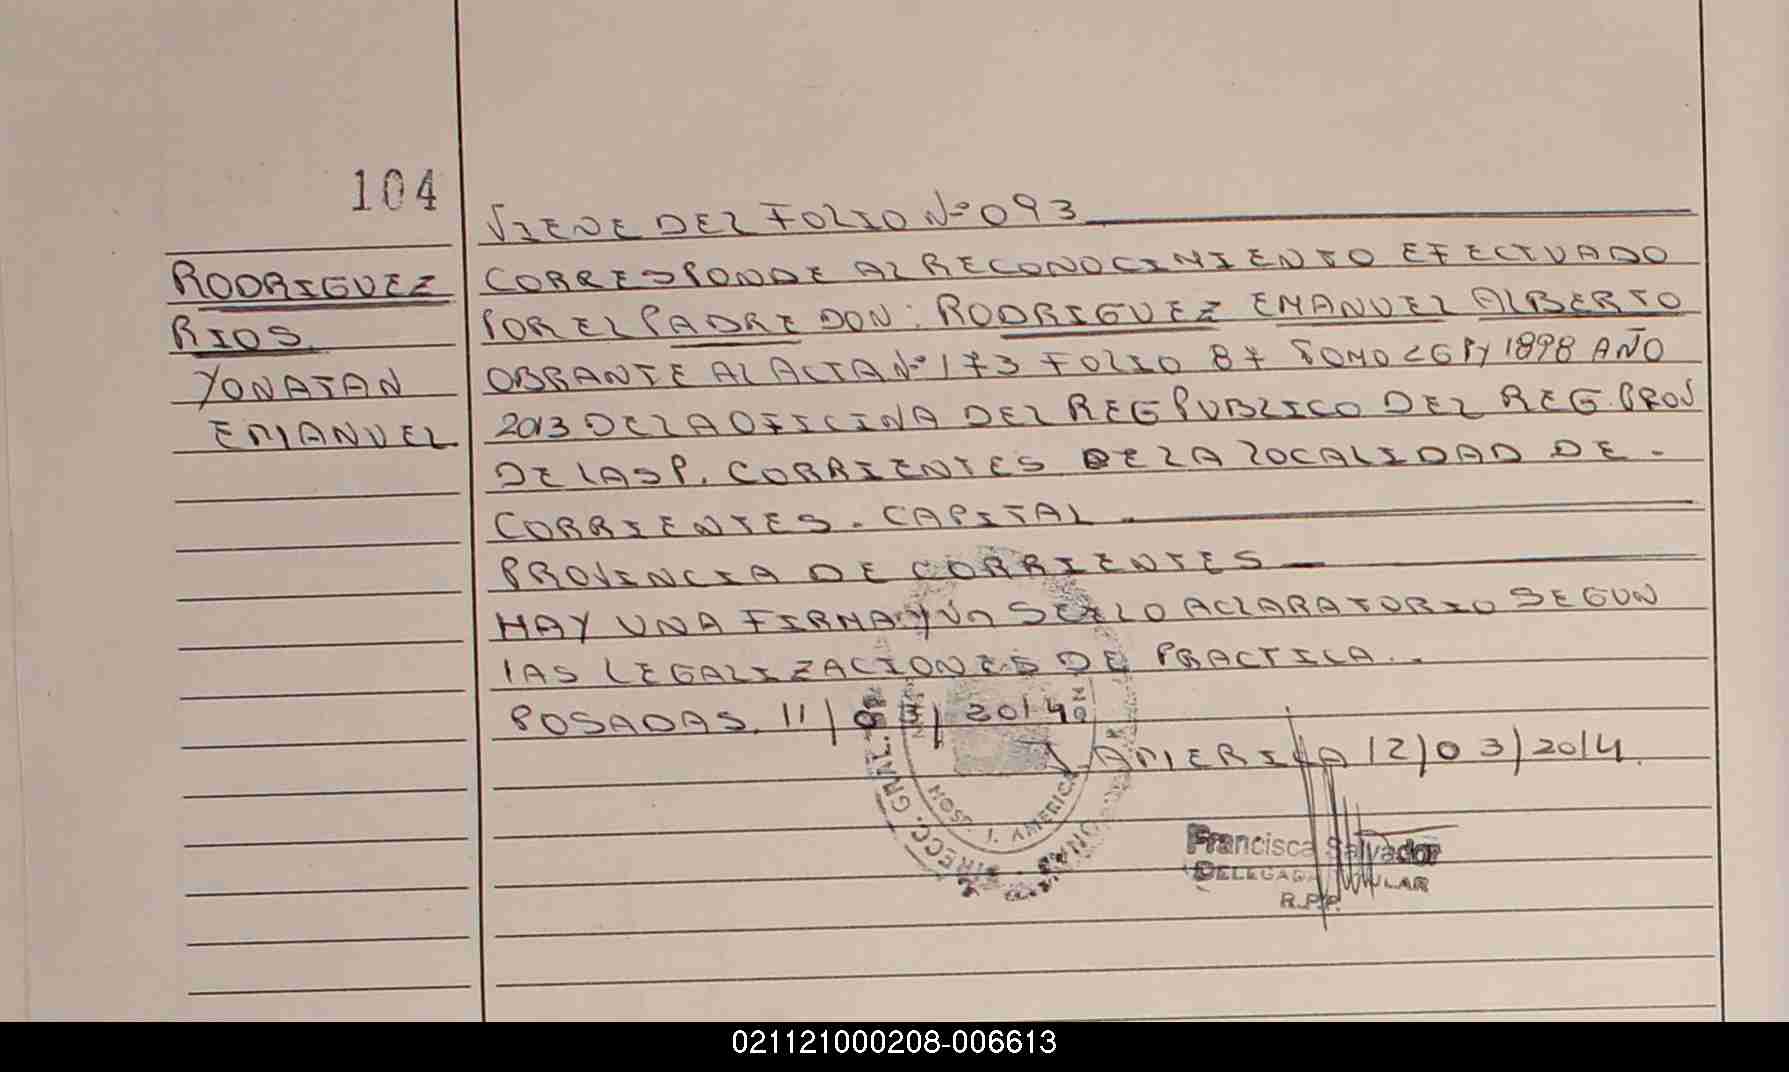 104
RODRIGUEZ
RIOS.
YONATAN
EMANUEL
VIENE DEL FOLIO Nº 093
CORRESPONDE AL RECONOCIMIENTO EFECTUADO
POR EL PADRE DON: RODRIGUEZ EMANUEL ALBERTO
OBRANTE AL ACTA Nº 173 FOLIO 87 TOMO 1898 AÑO
2013 DE LA OFICINA DEL REG PUBLICO DEL REG. PROV
DE LAS P. CORRIENTES DE LA LOCALIDAD DE -
CORRIENTES - CAPITAL -
PROVINCIA DE CORRIENTES -
HAY UNA FIRMA Y UN SELLO ACLARATORIO SEGUN
LAS LEGALIZACIONES DE PRACTICA..
POSADAS. 11/03/2014
J. AMERICA 12/03/2014.
DIRECC. GRAL.
J. AMERICA
Francisca Salvador
DELEGADA TITULAR
R.P.P.
021121000208-006613